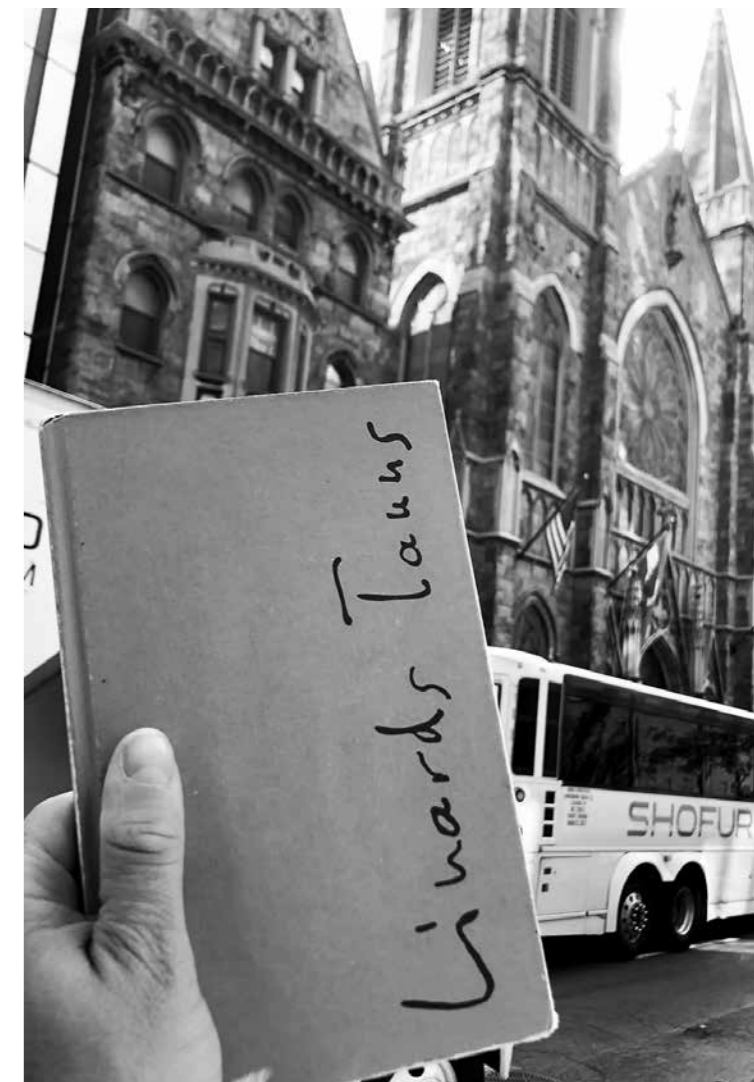 Linards Tauns
SHOFUR